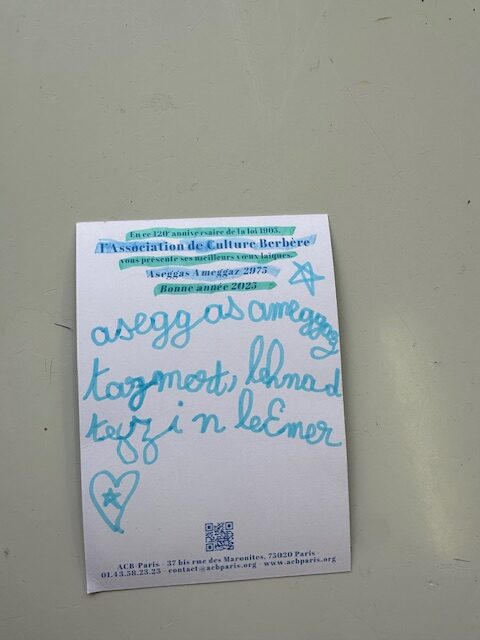 En ce 120e anniversaire de la loi 1905,
l'Association de Culture Berbère
vous présente ses meilleurs vœux laïques.
Aseggas Ameggaz 2975
Bonne année 2025
asegg as ameggaz
tazmert, lehna d
teɣzi n leɛmer
ACB-Paris - 37 bis rue des Maronites, 75020 Paris
01.43.58.23.25 - contact@acbparis.org - www.acbparis.org